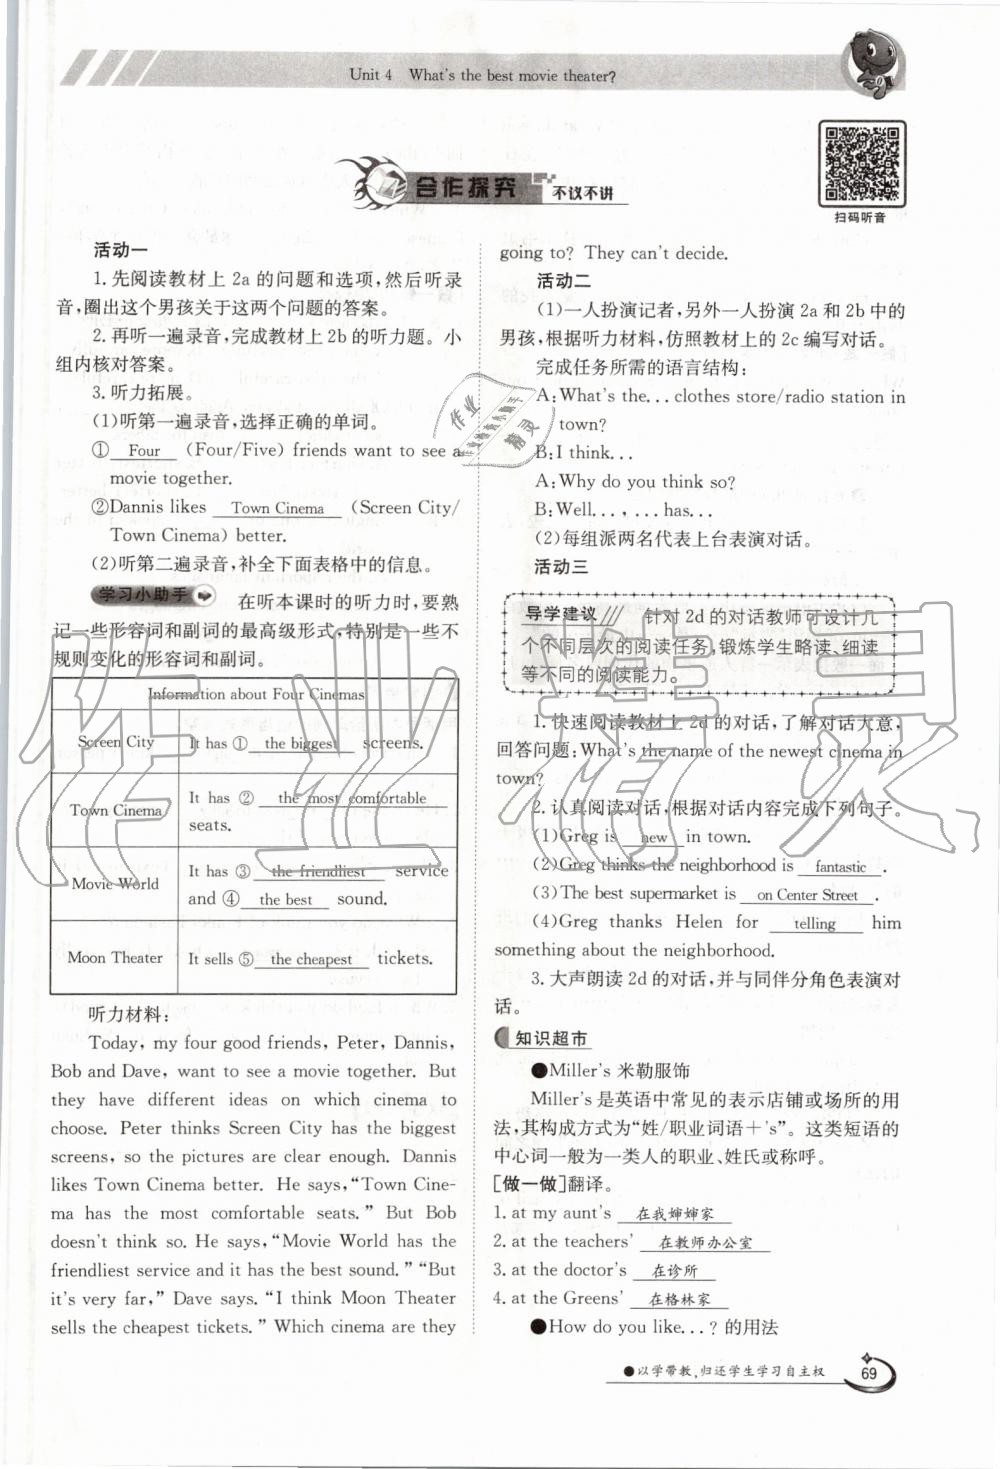 Unit 4 What's the best movie theater?
扫码听音
合作探究 不议不讲
活动一
1.先阅读教材上 2a 的问题和选项,然后听录
音,圈出这个男孩关于这两个问题的答案。
2.再听一遍录音,完成教材上 2b 的听力题。小
组内核对答案。
3.听力拓展。
(1)听第一遍录音,选择正确的单词。
① Four (Four/Five) friends want to see a
movie together.
②Dannis likes Town Cinema (Screen City/
Town Cinema) better.
(2)听第二遍录音,补全下面表格中的信息。
学习小助手 在听本课时的听力时,要熟
记一些形容词和副词的最高级形式,特别是一些不
规则变化的形容词和副词。
Information about Four Cinemas
Screen City It has ① the biggest screens.
Town Cinema It has ② the most comfortable
seats.
Movie World It has ③ the friendliest service
and ④ the best sound.
Moon Theater It sells ⑤ the cheapest tickets.
听力材料:
Today, my four good friends, Peter, Dannis,
Bob and Dave, want to see a movie together. But
they have different ideas on which cinema to
choose. Peter thinks Screen City has the biggest
screens, so the pictures are clear enough. Dannis
likes Town Cinema better. He says,“Town Cine-
ma has the most comfortable seats.” But Bob
doesn't think so. He says,“Movie World has the
friendliest service and it has the best sound.”“But
it's very far,” Dave says. “I think Moon Theater
sells the cheapest tickets.” Which cinema are they
going to? They can't decide.
活动二
(1)一人扮演记者,另外一人扮演 2a 和 2b 中的
男孩,根据听力材料,仿照教材上的 2c 编写对话。
完成任务所需的语言结构:
A:What's the... clothes store/radio station in
town?
B:I think...
A:Why do you think so?
B:Well...,...has...
(2)每组派两名代表上台表演对话。
活动三
导学建议 针对 2d 的对话教师可设计几
个不同层次的阅读任务,锻炼学生略读、细读
等不同的阅读能力。
1.快速阅读教材上 2d 的对话,了解对话大意,
回答问题:What's the name of the newest cinema in
town?
2.认真阅读对话,根据对话内容完成下列句子。
(1)Greg is new in town.
(2)Greg thinks the neighborhood is fantastic .
(3)The best supermarket is on Center Street .
(4)Greg thanks Helen for telling him
something about the neighborhood.
3.大声朗读 2d 的对话,并与同伴分角色表演对
话。
知识超市
●Miller's 米勒服饰
Miller's 是英语中常见的表示店铺或场所的用
法,其构成方式为“姓/职业词语+'s”。这类短语的
中心词一般为一类人的职业、姓氏或称呼。
[做一做]翻译。
1. at my aunt's 在我婶婶家
2. at the teachers' 在教师办公室
3. at the doctor's 在诊所
4. at the Greens' 在格林家
●How do you like...? 的用法
●以学带教,归还学生学习自主权
69
作业精灵